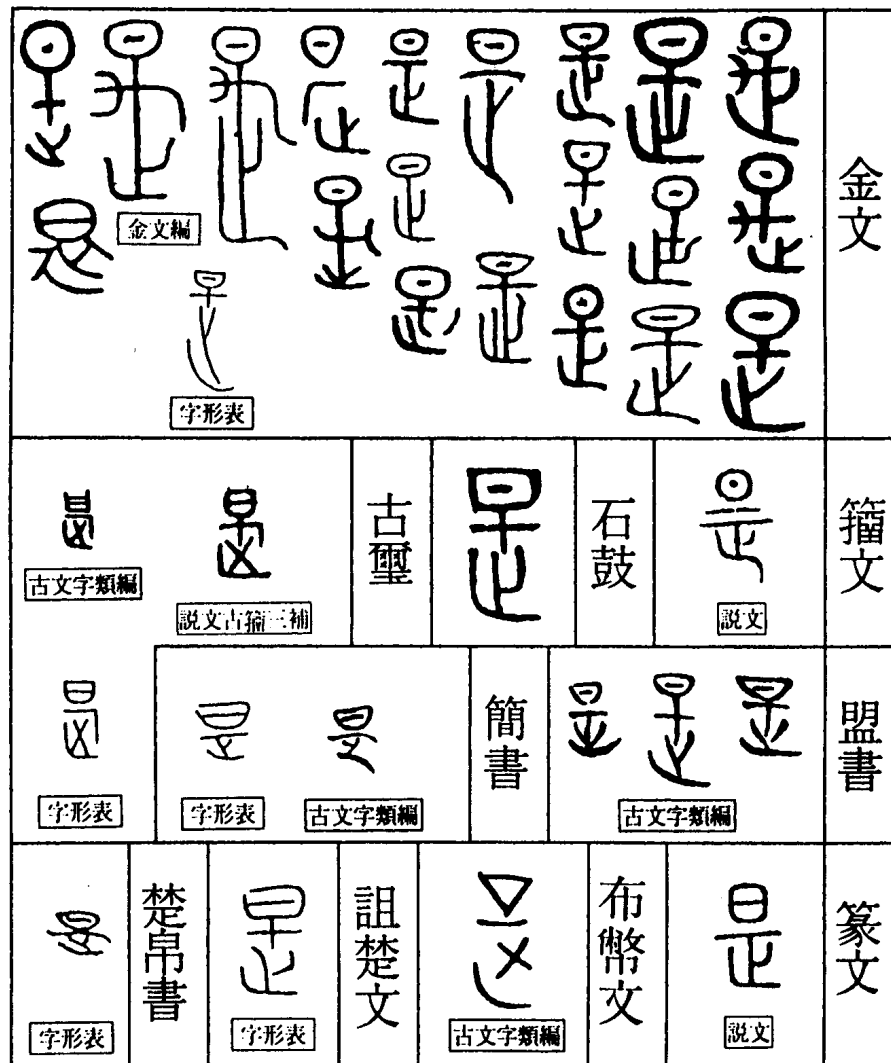 金文
金文編
字形表
籀文
説文
石鼓
古璽
説文古籀三補
古文字類編
字形表
盟書
古文字類編
簡書
古文字類編
字形表
篆文
是
説文
布幣文
古文字類編
詛楚文
字形表
楚帛書
字形表